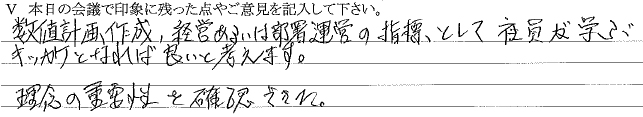 V 本日の会議で印象に残った点やご意見を記入して下さい。
数値計画作成,経営あるいは部署運営の指標、として社員が学ぶ
キッカケとなれば良いと考えます。
理念の重要性を確認された。